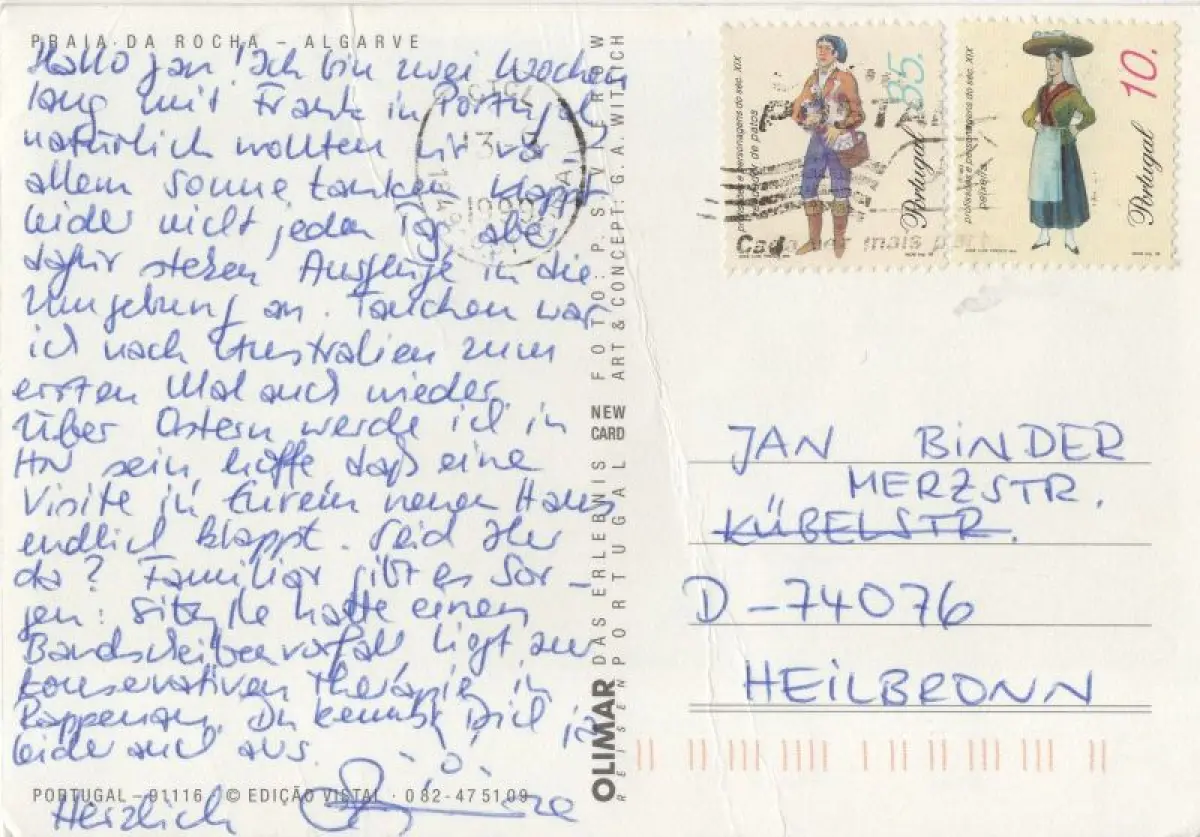 PRAIA DA ROCHA – ALGARVE
Hallo Jan! Ich bin zwei Wochen
lang mit Frank in Portugal
natürlich wollten wir vor
allem Sonne tanken klappt
leider nicht jeden Tag aber
dafür stehen Ausflüge in die
Umgebung an. Tauchen war
ich nach Australien zum
ersten Mal auch wieder.
Über Ostern werde ich in
HN sein, hoffe daß eine
Visite in Eurem neuen Haus
endlich klappt. Seid Ihr
da? Familiär gibt es Sor-
gen: hatte einen
Bandscheibenvorfall liegt zur
konservativen Therapie in
Rappenau. Du kennst Dich ja
leider auch aus.
Herzlich
PORTUGAL – 91116 · © EDIÇÃO VISTAL · 082-47 51 09
FOTO: P. S. V. FROW
ART & CONCEPT: G. A. WITTICH
NEW
CARD
OLIMAR DAS ERLEBNIS
REISEN PORTUGAL
profissões e personagens do séc. XIX
vendedor de patos
85.
Portugal
profissões e personagens do séc. XIX
peixeira
10.
Portugal
Cada vez mais
JAN BINDER
MERZSTR.
KÜBELSTR.
D-74076
HEILBRONN